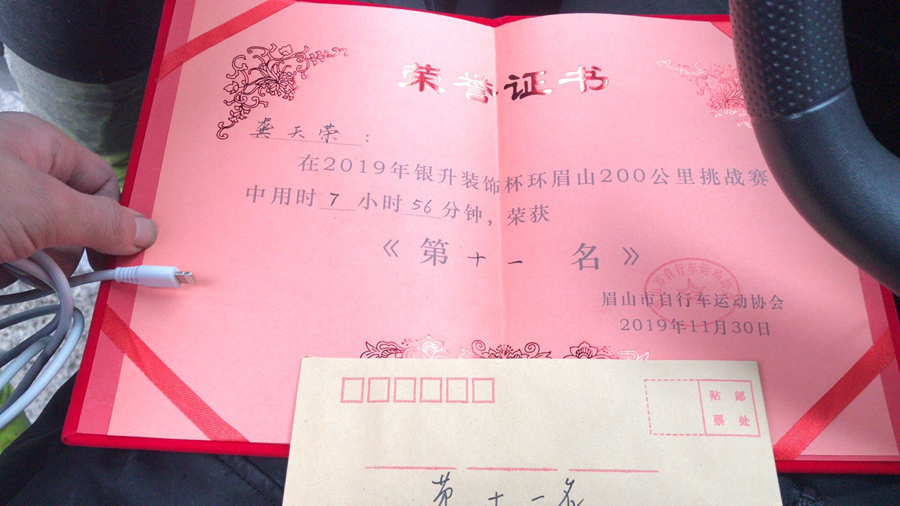 荣誉证书
龚天荣：
在2019年银升装饰杯环眉山200公里挑战赛
中用时7小时56分钟，荣获
《第十一名》
眉山市自行车运动协会
2019年11月30日
贴邮
票处
第十一名